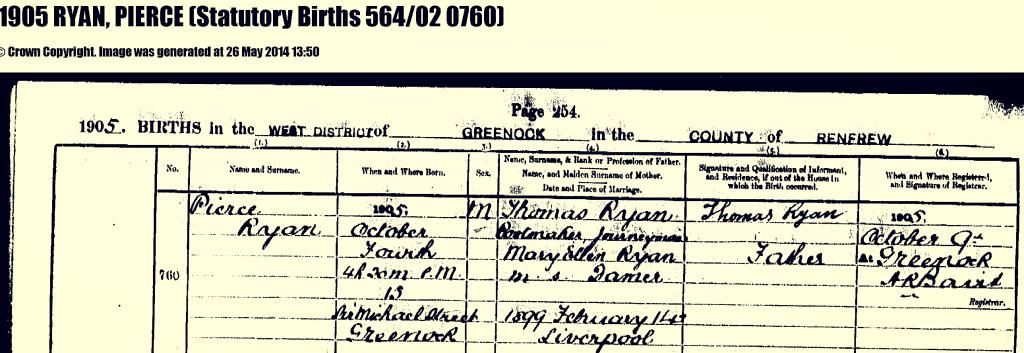 1905 RYAN, PIERCE (Statutory Births 564/02 0760)
© Crown Copyright. Image was generated at 26 May 2014 13:50
Page 254.
1905. BIRTHS in the WEST DISTRICT of GREENOCK in the COUNTY of RENFREW
(1.) (2.) (3.) (4.) (5.) (6.)
No.
Name and Surname.
When and Where Born.
Sex.
Name, Surname, & Rank or Profession of Father.
Name, and Maiden Surname of Mother.
Date and Place of Marriage.
Signature and Qualification of Informant,
and Residence, if out of the House in
which the Birth occurred.
When and Where Registered,
and Signature of Registrar.
760
Pierce
Ryan
1905,
October
Fourth
4h 30m P.M.
15
Sir Michael Street
Greenock
M
Thomas Ryan
Bootmaker Journeyman
Mary Ellen Ryan
m. s. Damer
1899 February 14th
Liverpool
Thomas Ryan
Father
1905,
October 9th
At Greenock
Registrar.